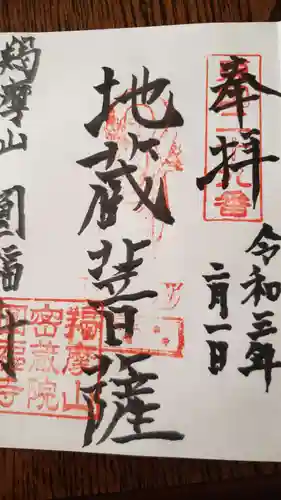 奉拝
令和三年
二月一日
地蔵菩薩
羯摩山 圓福寺
羯摩山
密蔵院
圓福寺